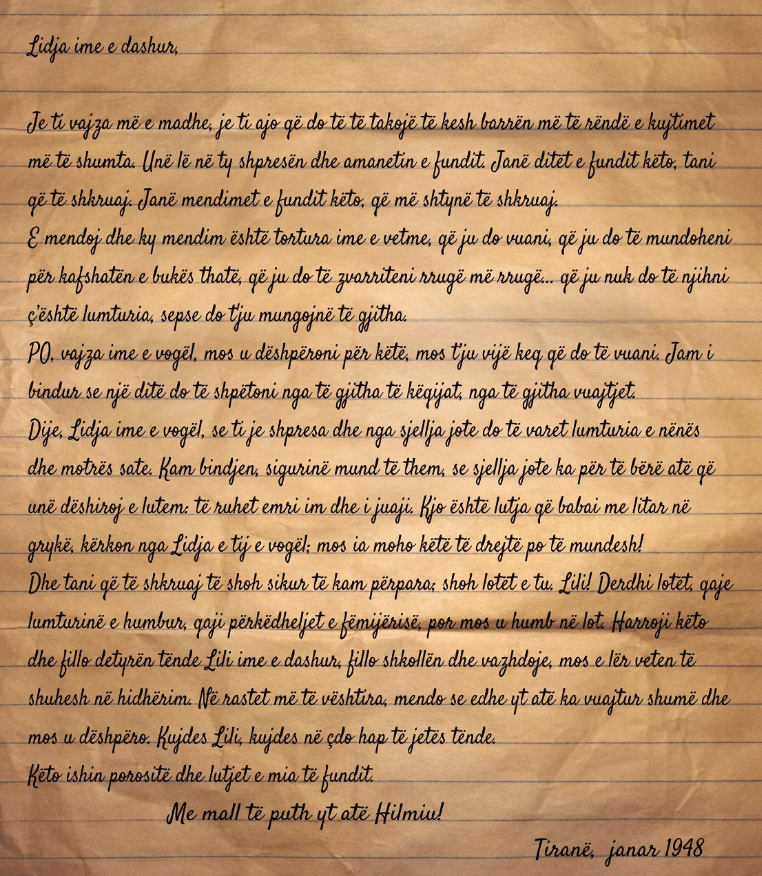 Lidja ime e dashur,
Je ti vajza më e madhe, je ti ajo që do të të takojë të kesh barrën më të rëndë e kujtimet
më të shumta. Unë lë në ty shpresën dhe amanetin e fundit. Janë ditët e fundit këto, tani
që të shkruaj. Janë mendimet e fundit këto, që më shtynë të shkruaj.
E mendoj dhe ky mendim është tortura ime e vetme, që ju do vuani, që ju do të mundoheni
për kafshatën e bukës thatë, që ju do të zvarriteni rrugë më rrugë... që ju nuk do të njihni
ç'është lumturia, sepse do t'ju mungojnë të gjitha.
PO, vajza ime e vogël, mos u dëshpëroni për këtë, mos t'ju vijë keq që do të vuani. Jam i
bindur se një ditë do të shpëtoni nga të gjitha të këqijat, nga të gjitha vuajtjet.
Dije, Lidja ime e vogël, se ti je shpresa dhe nga sjellja jote do të varet lumturia e nënës
dhe motrës sate. Kam bindjen, sigurinë mund të them, se sjellja jote ka për të bërë atë që
unë dëshiroj e lutem: të ruhet emri im dhe i juaji. Kjo është lutja që babai me litar në
grykë, kërkon nga Lidja e tij e vogël; mos ia moho këtë të drejtë po të mundesh!
Dhe tani që të shkruaj të shoh sikur të kam përpara; shoh lotët e tu. Lili! Derdhi lotët, qaje
lumturinë e humbur, qaji përkëdheljet e fëmijërisë, por mos u humb në lot. Harroji këto
dhe fillo detyrën tënde Lili ime e dashur, fillo shkollën dhe vazhdoje, mos e lër veten të
shuhesh në hidhërim. Në rastet më të vështira, mendo se edhe yt atë ka vuajtur shumë dhe
mos u dëshpëro. Kujdes Lili, kujdes në çdo hap të jetës tënde.
Këto ishin porositë dhe lutjet e mia të fundit.
Me mall të puth yt atë Hilmiu!
Tiranë, janar 1948